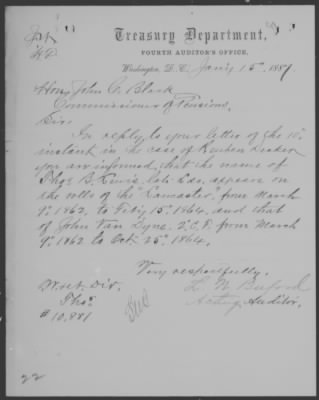 Treasury Department,
FOURTH AUDITOR'S OFFICE,
Washington, D. C. Jan'y 15" 1887
Hon. John C. Black
Commissioner of Pensions,
Sir:
In reply to your letter of the 10"
instant in the case of Reuben
you are informed, that the name of
Thos B. Lewis, late Lds, appears on
the rolls of the "Lancaster" from March
9" 1862, to Feb'y 15" 1864, and that
of John Van Dyne, 2.C.F. from March
9" 1862 to Oct. 25" 1864.
Very respectfully,
L. W. Buford
Acting Auditor.
West. Div.
Thos
# 10,981
22